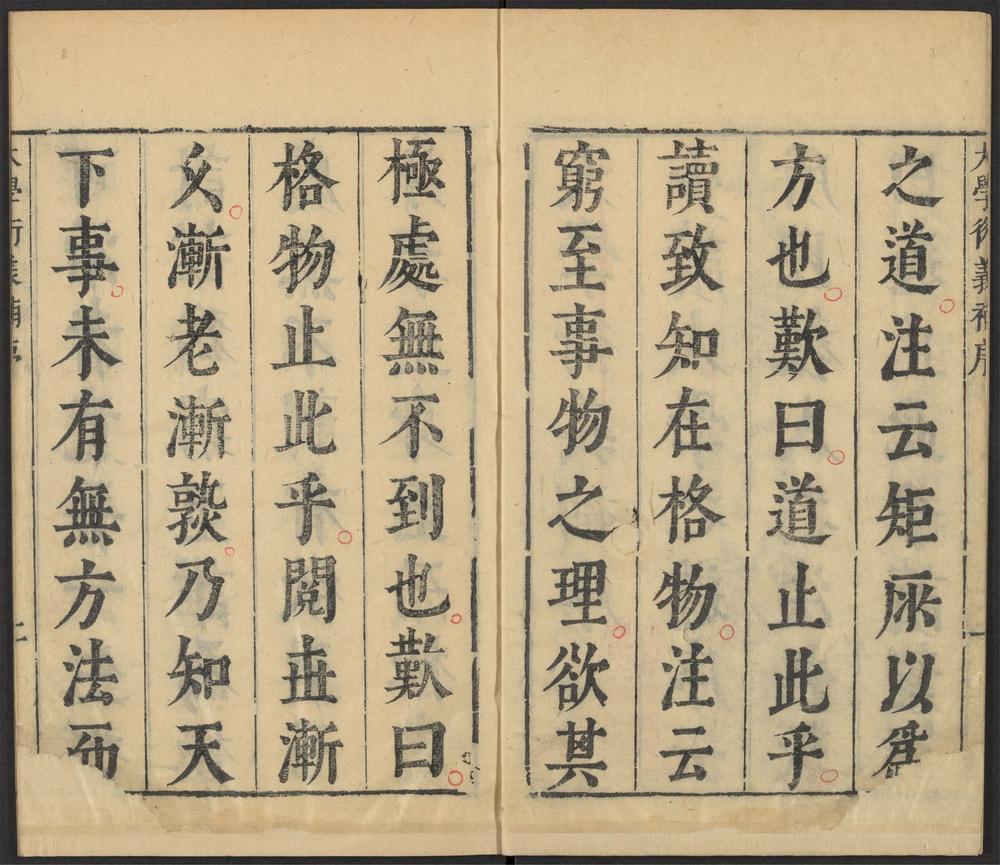 大學衍義補序
之道注云矩所以爲
方也歎曰道止此乎
讀致知在格物注云
窮至事物之理欲其
極處無不到也歎曰
格物止此乎閱丗漸
久漸老漸敦乃知天
下事未有無方法而
大學衍義補序
二